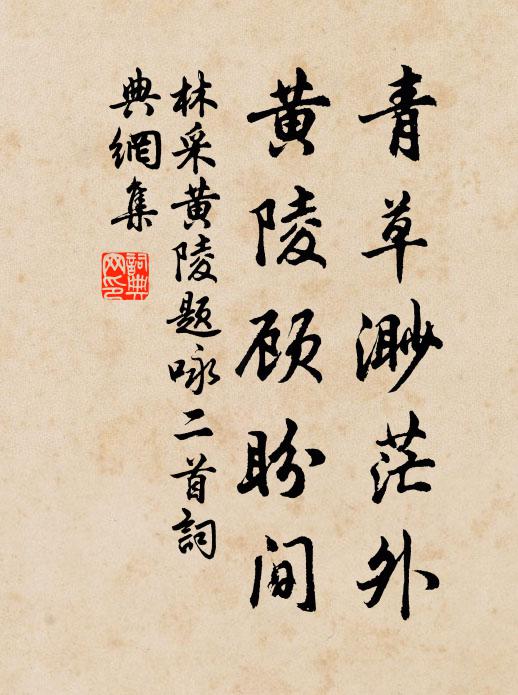 青草渺茫外
黄陵顾盼间
林采黄陵题咏二首詞
典網集
詞典網印